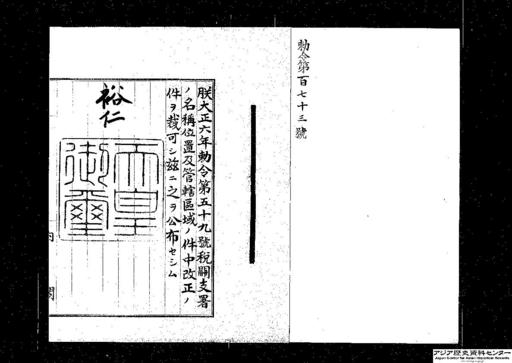 勅令第百七十三號
朕大正六年勅令第五十九號税關支署
ノ名稱位置及管轄區域ノ件中改正ノ
件ヲ裁可シ茲ニ之ヲ公布セシム
裕仁
天皇
御璽
内閣
アジア歴史資料センター
Japan Center for Asian Historical Records